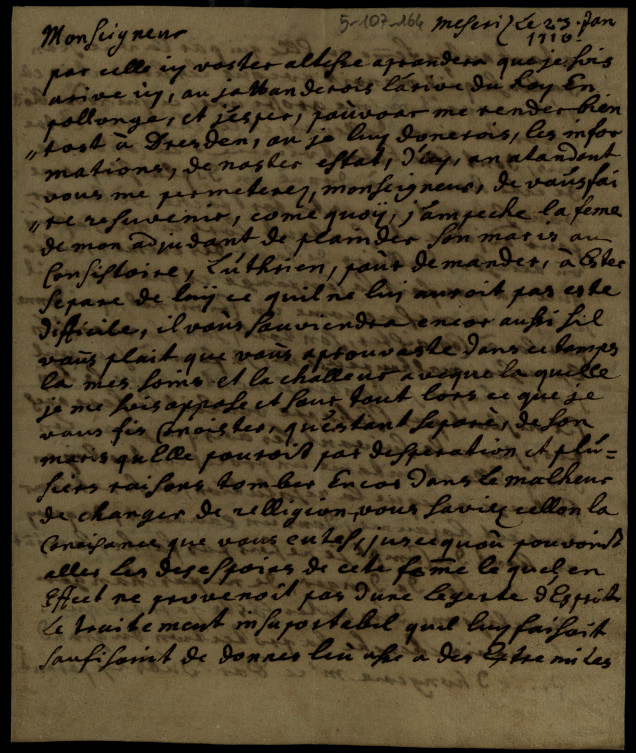 5-107-166
Monseigneur meseriz Le 23. Jan
1710.
par celle icy vostre altesse aprandera que je suis
arive icy, ou jattanderois l'arive du Roy En
pollonge, et j'esper, pouvoar me render bien
"tost à Dresden, ou je luy donerois, les infor
mations, de noster estat, d'icy, an atandant
vous me permeterez, monseigneur, de vous fai
"re resuvenir, come quoÿ, j'ampeche la feme
de mon adjudant de plainder son maris au
Consistoire, Lúthrien, pour demander, à Ester
separe de luÿ ce quil ne luy auroit pas este
difficile, il vous sauviendra encor aussi sil
vous plait que vous aprouvaste dans ce temps
la mes soins et la challeur aveque la quelle
je me suis oppose et sour tout lors ce que je
vous fis Conoister, qu'estant separè, de son
maris quElle pouroit par desperation et plu=
siers raisons tomber Encor dans le malheur
de changer de relligion, vous saviez cellon la
Coneisance que vous eutes, jusequou pouvoinst
aller les desespoirs de cete feme le quel en
Effect ne provenoit pas dune legerte d'Esprits
le traitement insuportabel quil luy faisoit
saufisoint de donner lieu a des Extremites